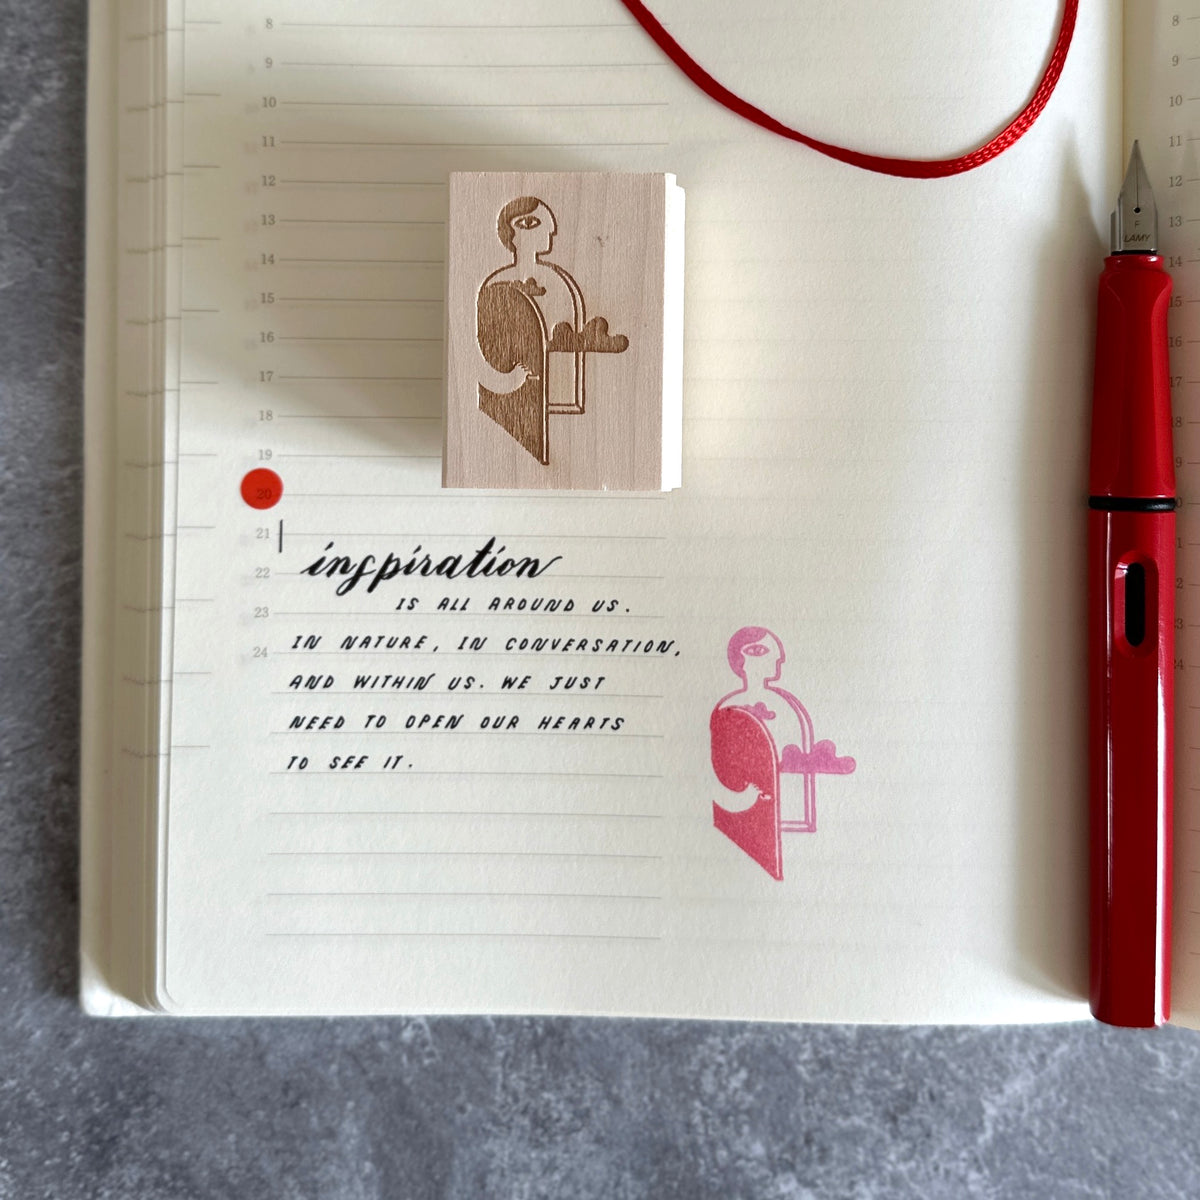 8
9
10
11
12
13
14
15
16
17
18
19
20
21
22
23
24
inspiration
IS ALL AROUND US.
IN NATURE, IN CONVERSATION,
AND WITHIN US. WE JUST
NEED TO OPEN OUR HEARTS
TO SEE IT.
F
LAMY
8
9
10
11
12
13
14
15
16
17
18
19